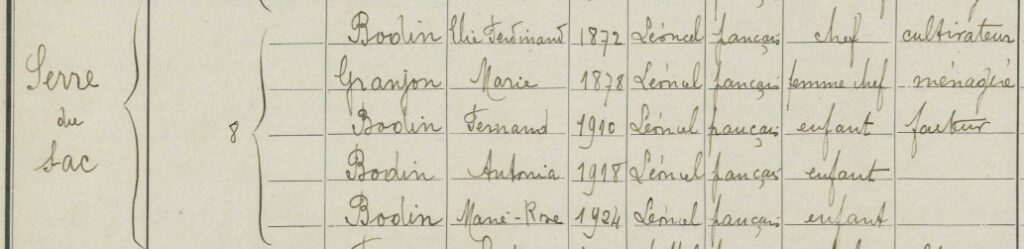 Bodin Elie Ferdinand 1872 Léoncel français chef cultivateur
Serre Granjon Marie 1878 Léoncel français femme chef ménagère
du 8 Bodin Fernand 1910 Léoncel français enfant facteur
Sac Bodin Antonia 1918 Léoncel français enfant
Bodin Marie-Rose 1924 Léoncel français enfant